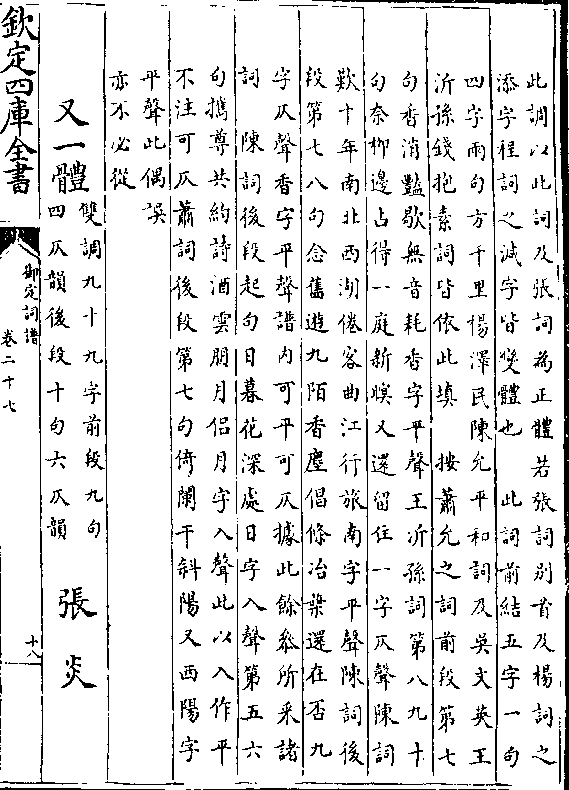 此調以此詞及張詞為正體若張詞别首及楊詞之
添字程詞之減字皆變體也　此詞前結五字一句
四字兩句方千里楊澤民陳允平和詞及吳文英王
沂孫錢抱素詞皆依此填　按蕭允之詞前段第七
句香消豔歇無音耗香字平聲王沂孫詞第八九十
句奈柳邊占得一庭新暝又還留住一字仄聲陳詞
歎十年南北西湖倦客曲江行旅南字平聲陳詞後
段第七八句念舊遊九陌香塵倡條冶葉還在否九
字仄聲香字平聲譜内可平可仄據此餘叅所采諸
詞　陳詞後段起句日暮花深處日字入聲第五六
句攜尊共約詩酒雲朋月侶月字入聲此以入作平
不注可仄蕭詞後段第七句倚闌干斜陽又西陽字
平聲此偶誤
亦不必從
又一體 雙調九十九字前段九句
四仄韻後段十句六仄韻 張炎
欽定四庫全書
御定詞譜
卷二十七
十八